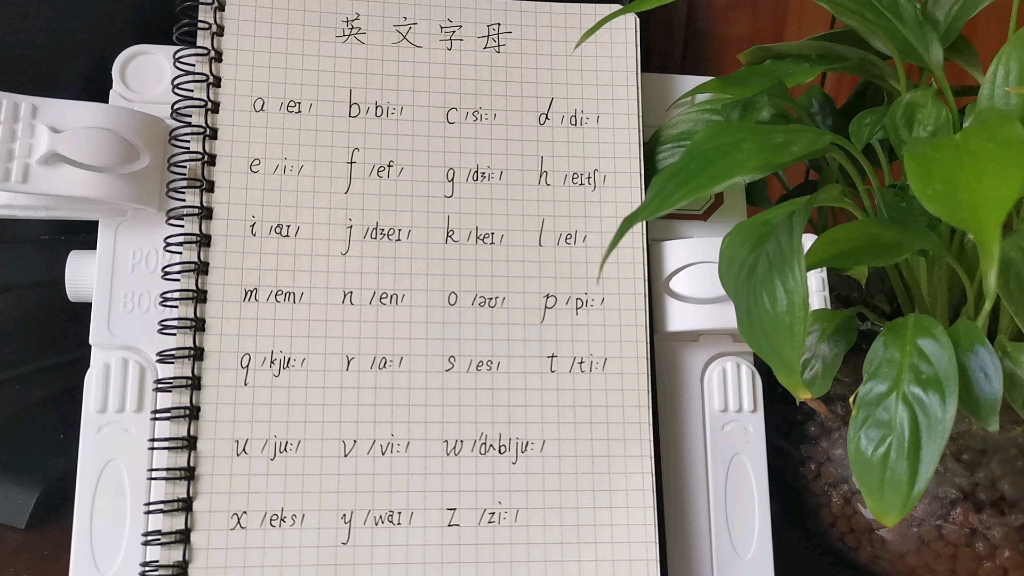 英文字母
a /eɪ/ b /bi:/ c /si:/ d /di:/
e /i:/ f /ef/ g /dʒi:/ h /eɪtʃ/
i /aɪ/ j /dʒeɪ/ k /keɪ/ l /el/
m /em/ n /en/ o /əʊ/ p /pi:/
q /kju:/ r /a:/ s /es/ t /ti:/
u /ju:/ v /vi:/ w /'dʌblju:/
x /eks/ y /waɪ/ z /zi:/